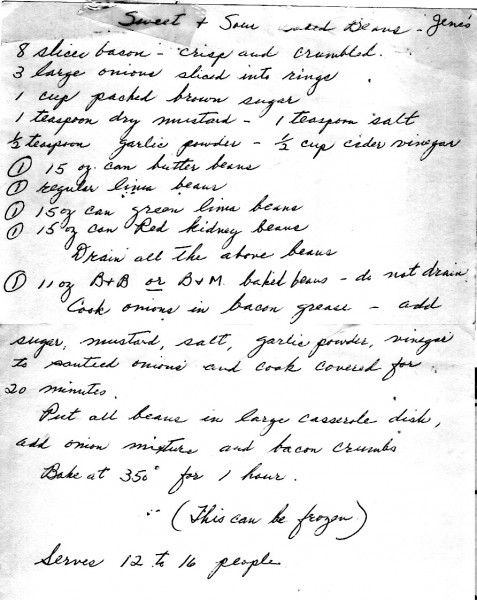 Sweet + Sour Baked Beans - Jene's
8 slices bacon - crisp and crumbled.
3 large onions sliced into rings
1 cup packed brown sugar
1 teaspoon dry mustard - 1 teaspoon salt
½ teaspoon garlic powder - ½ cup cider vinegar
① 15 oz. can butter beans
① regular lima beans
① 15 oz can green lima beans
① 15 oz can Red kidney beans
Drain all the above beans
① 11 oz B+B or B+M baked beans - do not drain
Cook onions in bacon grease - add
sugar, mustard, salt, garlic powder, vinegar
to sauteed onions and cook covered for
20 minutes.
Put all beans in large casserole dish,
add onion mixture and bacon crumbs
Bake at 350° for 1 hour.
(This can be frozen)
Serves 12 to 16 people